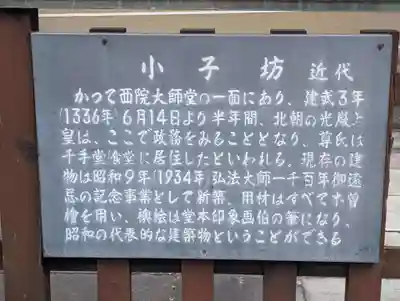 小子坊 近代
かつて西院大師堂の一面にあり、建武3年
(1336年)6月14日より半年間、北朝の光厳上
皇は、ここで政務をみることとなり、尊氏は
千手堂(食堂)に居住したといわれる。現存の建
物は昭和9年(1934年)弘法大師一千百年御遠
忌の記念事業として新築、用材はすべて木曽
檜を用い、襖絵は堂本印象画伯の筆になり、
昭和の代表的な建築物ということができる